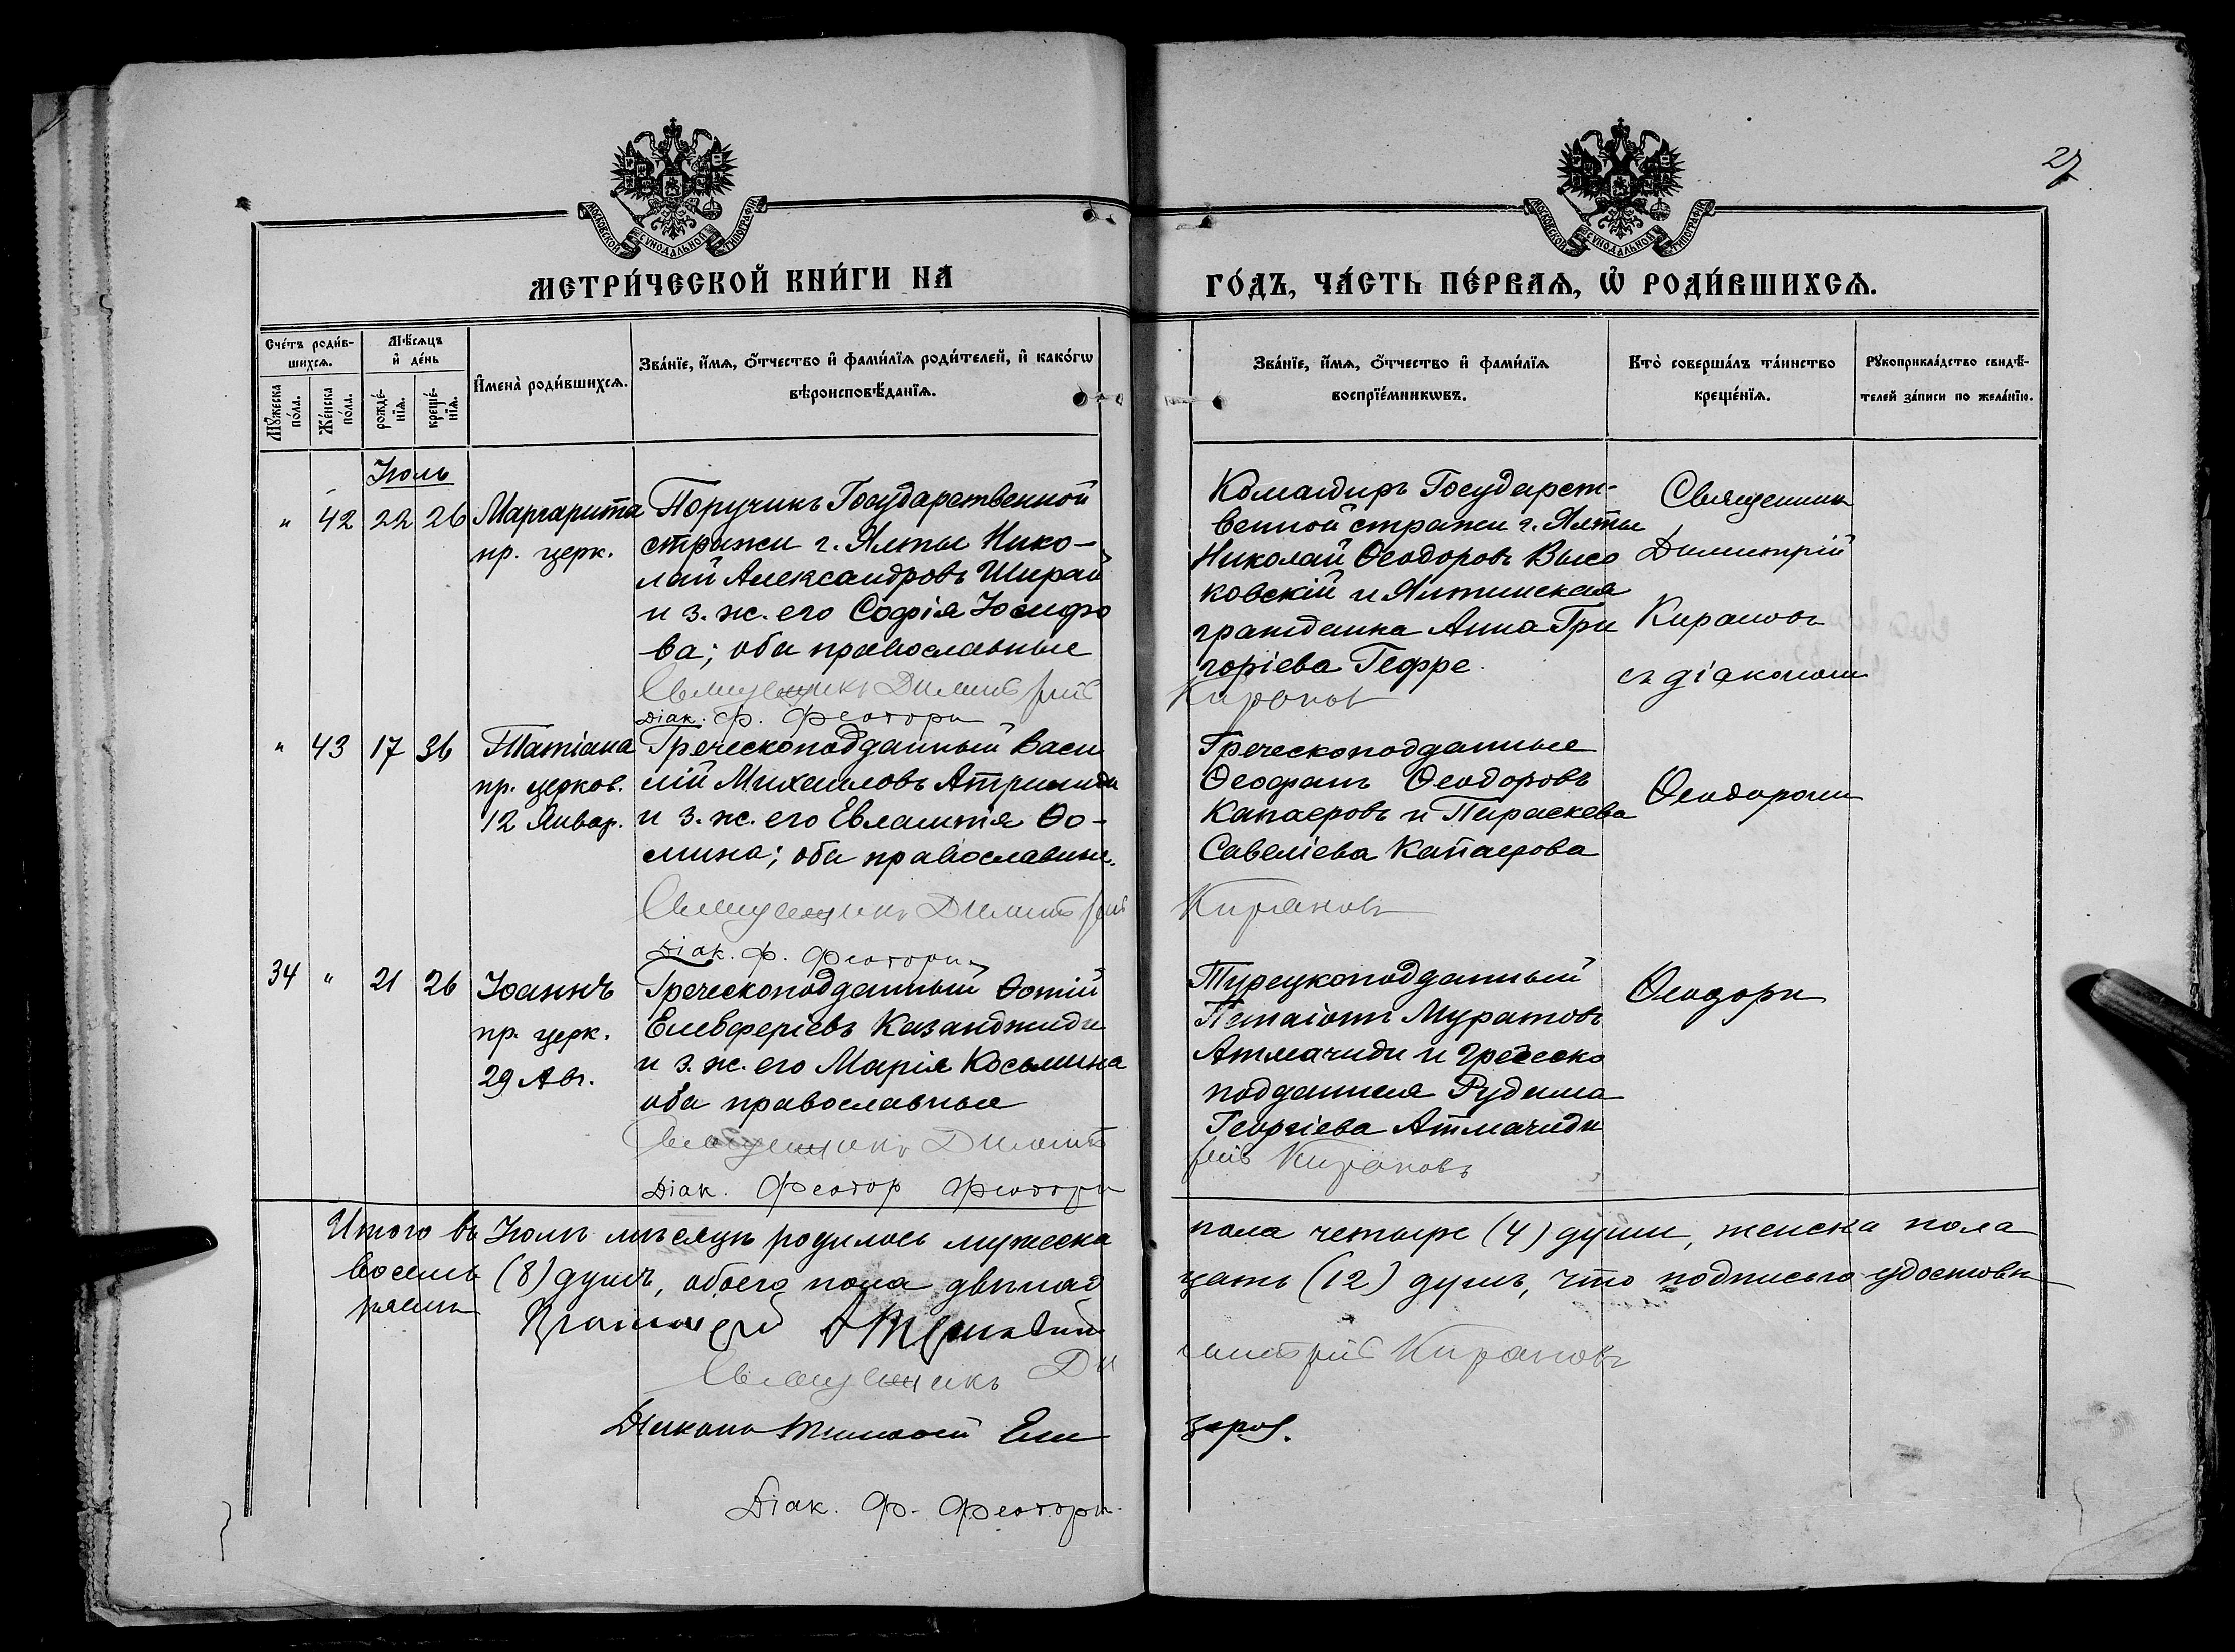 27
МОСКОВСКОЙ СѴНОДАЛЬНОЙ ТИПОГРАФІИ
МОСКОВСКОЙ СѴНОДАЛЬНОЙ ТИПОГРАФІИ
МЕТРИ́ЧЕСКОЙ КНИ́ГИ НА
ГО́ДЪ, ЧА́СТЬ ПЕ́РВАѦ, Ѡ҆ РОДИ́ВШИХСѦ.
Сче́тъ роди́в-
шихсѧ.
Мꙋ́жеска
по́ла.
Же́нска
по́ла.
Мѣ́сѧцъ
и҆ де́нь
рожде́-
нїѧ.
креще́-
нїѧ.
И҆мена̀ роди́вшихсѧ.
Зва́нїе, и҆́мѧ, ѻ҆́тчество и҆ фами́лїѧ роди́телей, и҆ како́гѡ
вѣроисповѣ́данїѧ.
Зва́нїе, и҆́мѧ, ѻ҆́тчество и҆ фами́лїѧ
воспрїе́мникѡвъ.
Кто̀ соверша́лъ та́инство
креще́нїѧ.
Рꙋкоприкла́дство свидѣ́-
телей за́писи по жела́нїю.
Іюль
" 42 22 26
Маргарита
пр. церк.
Поручикъ Государственной
стражи г. Ялты Нико-
лай Александровъ Ширай
и з. ж. его Софія Іосифо
ва; оба православные
Священникъ Димитрій
Діак. Ф. Феодори
Командиръ Государст-
венной стражи г. Ялты
Николай Ѳеодоровъ Высо
ковскій и Ялтинская
гражданка Анна Гри
горіева Гефре
Кирановъ
Священник
Димитрій
Кирановъ
съ діакономъ
" 43 17 26
Татіана
пр. церков.
12 Январ.
Греческоподданный Васи
лій Михаиловъ Атриниди
и з. ж. его Евлампія Ѳо-
мина; оба православные.
Священникъ Димитрій
Діак. Ф. Феодори
Греческоподданные
Ѳеофанъ Ѳеодоровъ
Капаеровъ и Параскева
Савеліева Капаерова
Кирановъ
Ѳеодоромъ
34 " 21 26
Іоаннъ
пр. церк.
29 Авг.
Греческоподданный Ѳотій
Елевферіевъ Казанджиди
и з. ж. его Марія Косьмина
оба православные
Священникъ Димит
Діак. Феодор Феодори
Турецкоподданный
Панаіотъ Муратовъ
Атмачиди и греческо
подданная
Георгіева Атмачиди
рій Кирановъ
Ѳеодори
Итого въ Іюлѣ мѣсяцѣ родилось мужеска
пола четыре (4) души, женска пола
восемь (8) душъ, обоего пола двѣнад
цать (12) душъ, что подписью удостовѣ
ряемъ
Протоіерей
Священникъ Ди
митрій Кирановъ
Діаконъ Тимофей
Діак. Ф. Феодори.